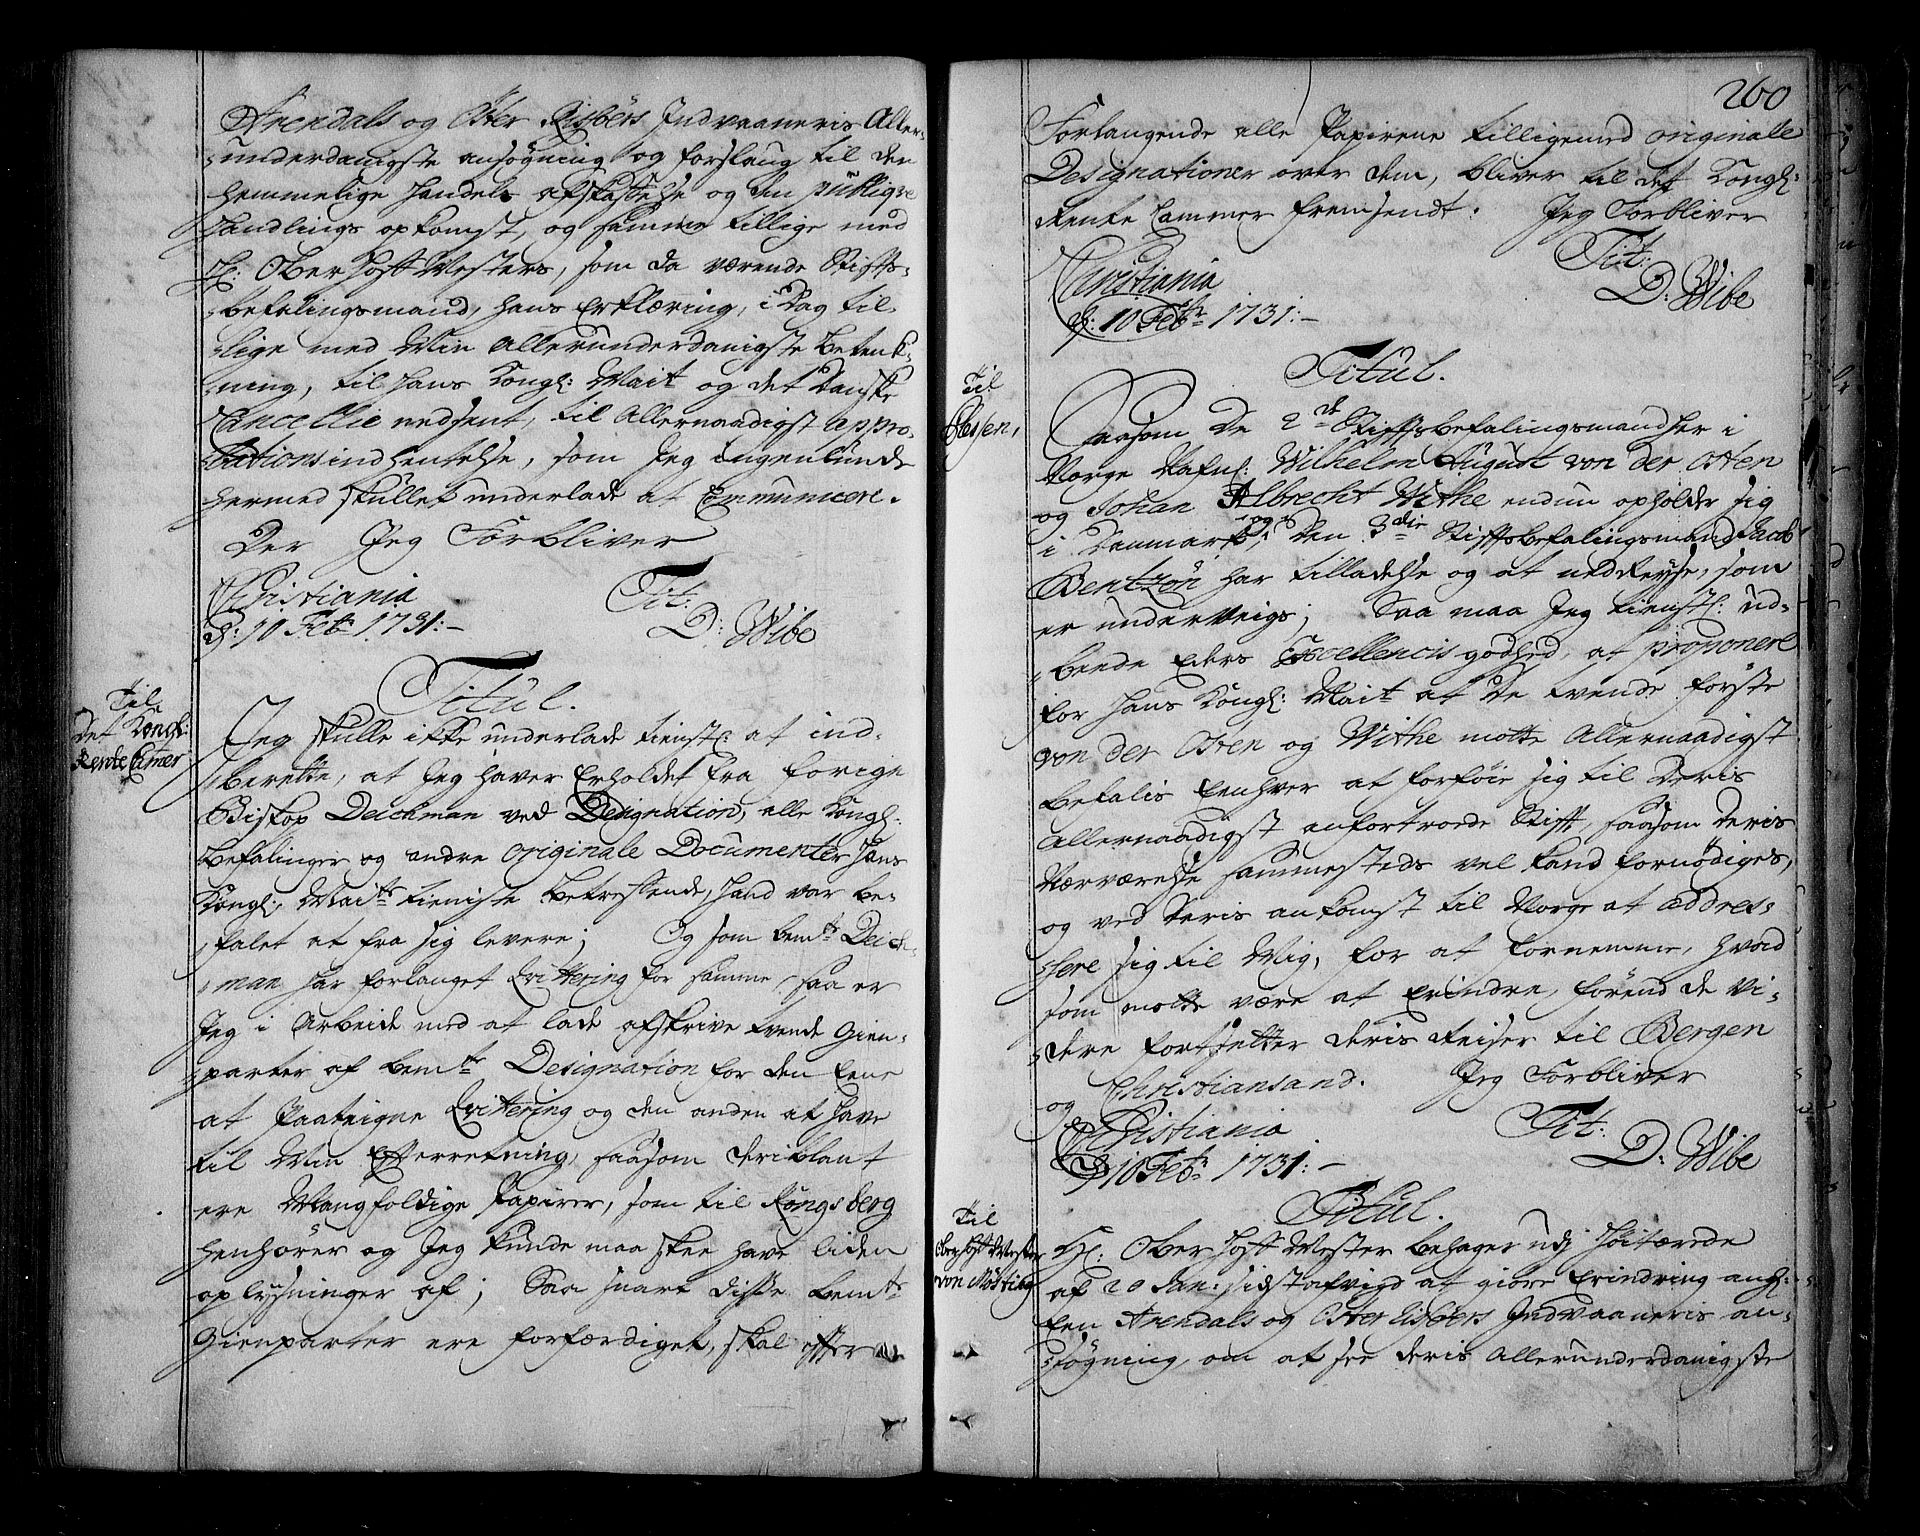 Arendals og Öster Riisöers Indvaaneris Aller-
underdanigste ansögning og forslaug til den
hemmelige handels afskaffelse og den publiqve
handlings opkomst, og samme tillige med
Hr: Ober Hoff Mesters, som da værende Stifts-
befalingsmand, hans Erklæring, i Dag til-
lige med Min allerunderdanigste betenk-
ning, til Hans Kongl: Maist og det Danske
Cancellie nedsent, til Allernaadigst appro-
bations indhentelse, som Jeg ingenlunde
hermed skullet underlade at Communicere.
Der Jeg Forbliver
Christiania
d: 10 Febr 1731:- Tit:
D: Wibe
Titul.
Til
Det Kongl:
Rente Camer
Jeg skulle ikke underlade tienstl: at ind-
berette, at Jeg haver Erholdet fra forige
Biskop Deichman ved Designation, alle Kongl:
befalinger og andre originale Documenter Hans
Kongl: Maits tieniste betreffende, hand var be-
falet at fra sig levere; Og som bemte Deich-
man har forlanget Qvittering for samme, saa er
Jeg i Arbeide med at lade afskrive tvende Gien-
parter af bemte Designation for den Eene
at paateigne Qvittering og den anden at have
til Min Efterretning, saasom deriblant
ere Mangfoldige Papirer, som til Kongsberg
henhörer og Jeg kunde maa skee have liden
oplysninger af; Saa snart disse bemte
Gienparter ere forfærdiget, skal efter
260
Forlangende alle Papirene tilligemed originale
Designationer over dem, bliver til det Kongl:
Rente Cammer fremsendt. Jeg Forbliver
Christiania
d: 10 Febr 1731:- Tit:
D: Wibe
Titul.
Til
Saasom De 2de Stiftsbefalingsmænd her i
Norge Nafnl: Wilhelm August von der Osten
og Johan Albrecht Withe endnu opholder sig
i Danmark, og den 3die Stiftsbefalingsmand Jacob
Bentzon har tilladelse og at nedReyse, som
er underveigs; Saa maa Jeg tienstl: ud-
bende Eders Excellencis godhed, at proponere
for Hans Kongl: Mait at De tvende förste
von der Osten og Withe motte Allernaadigst
befalis Eenhver at forföie sig til Deris
Allernaadigst anfortroede Stift, saasom Deris
Nærværelse sammesteds vel kand fornödiges,
og ved deris ankomst til Norge at addres-
sere sig til Mig, for at fornemme, hvad
som motte være at Erindre, förend de vi-
dere fortsetter deris Reiser til Bergen
og Christiansand. Jeg Forbliver
Christiania
d: 10 Febr 1731:- Tit:
D: Wibe
Titul.
Til
Ober Hoff Mester
von Mösting
Hr: Ober Hoff Mester behager udj Höitærede
af 20 Jan: sidst afvigd at giöre Erindring angl:
Een Arendals og Öster Riisöers Indvaaneris an-
sögning, om at see deris Allerunderdanigste